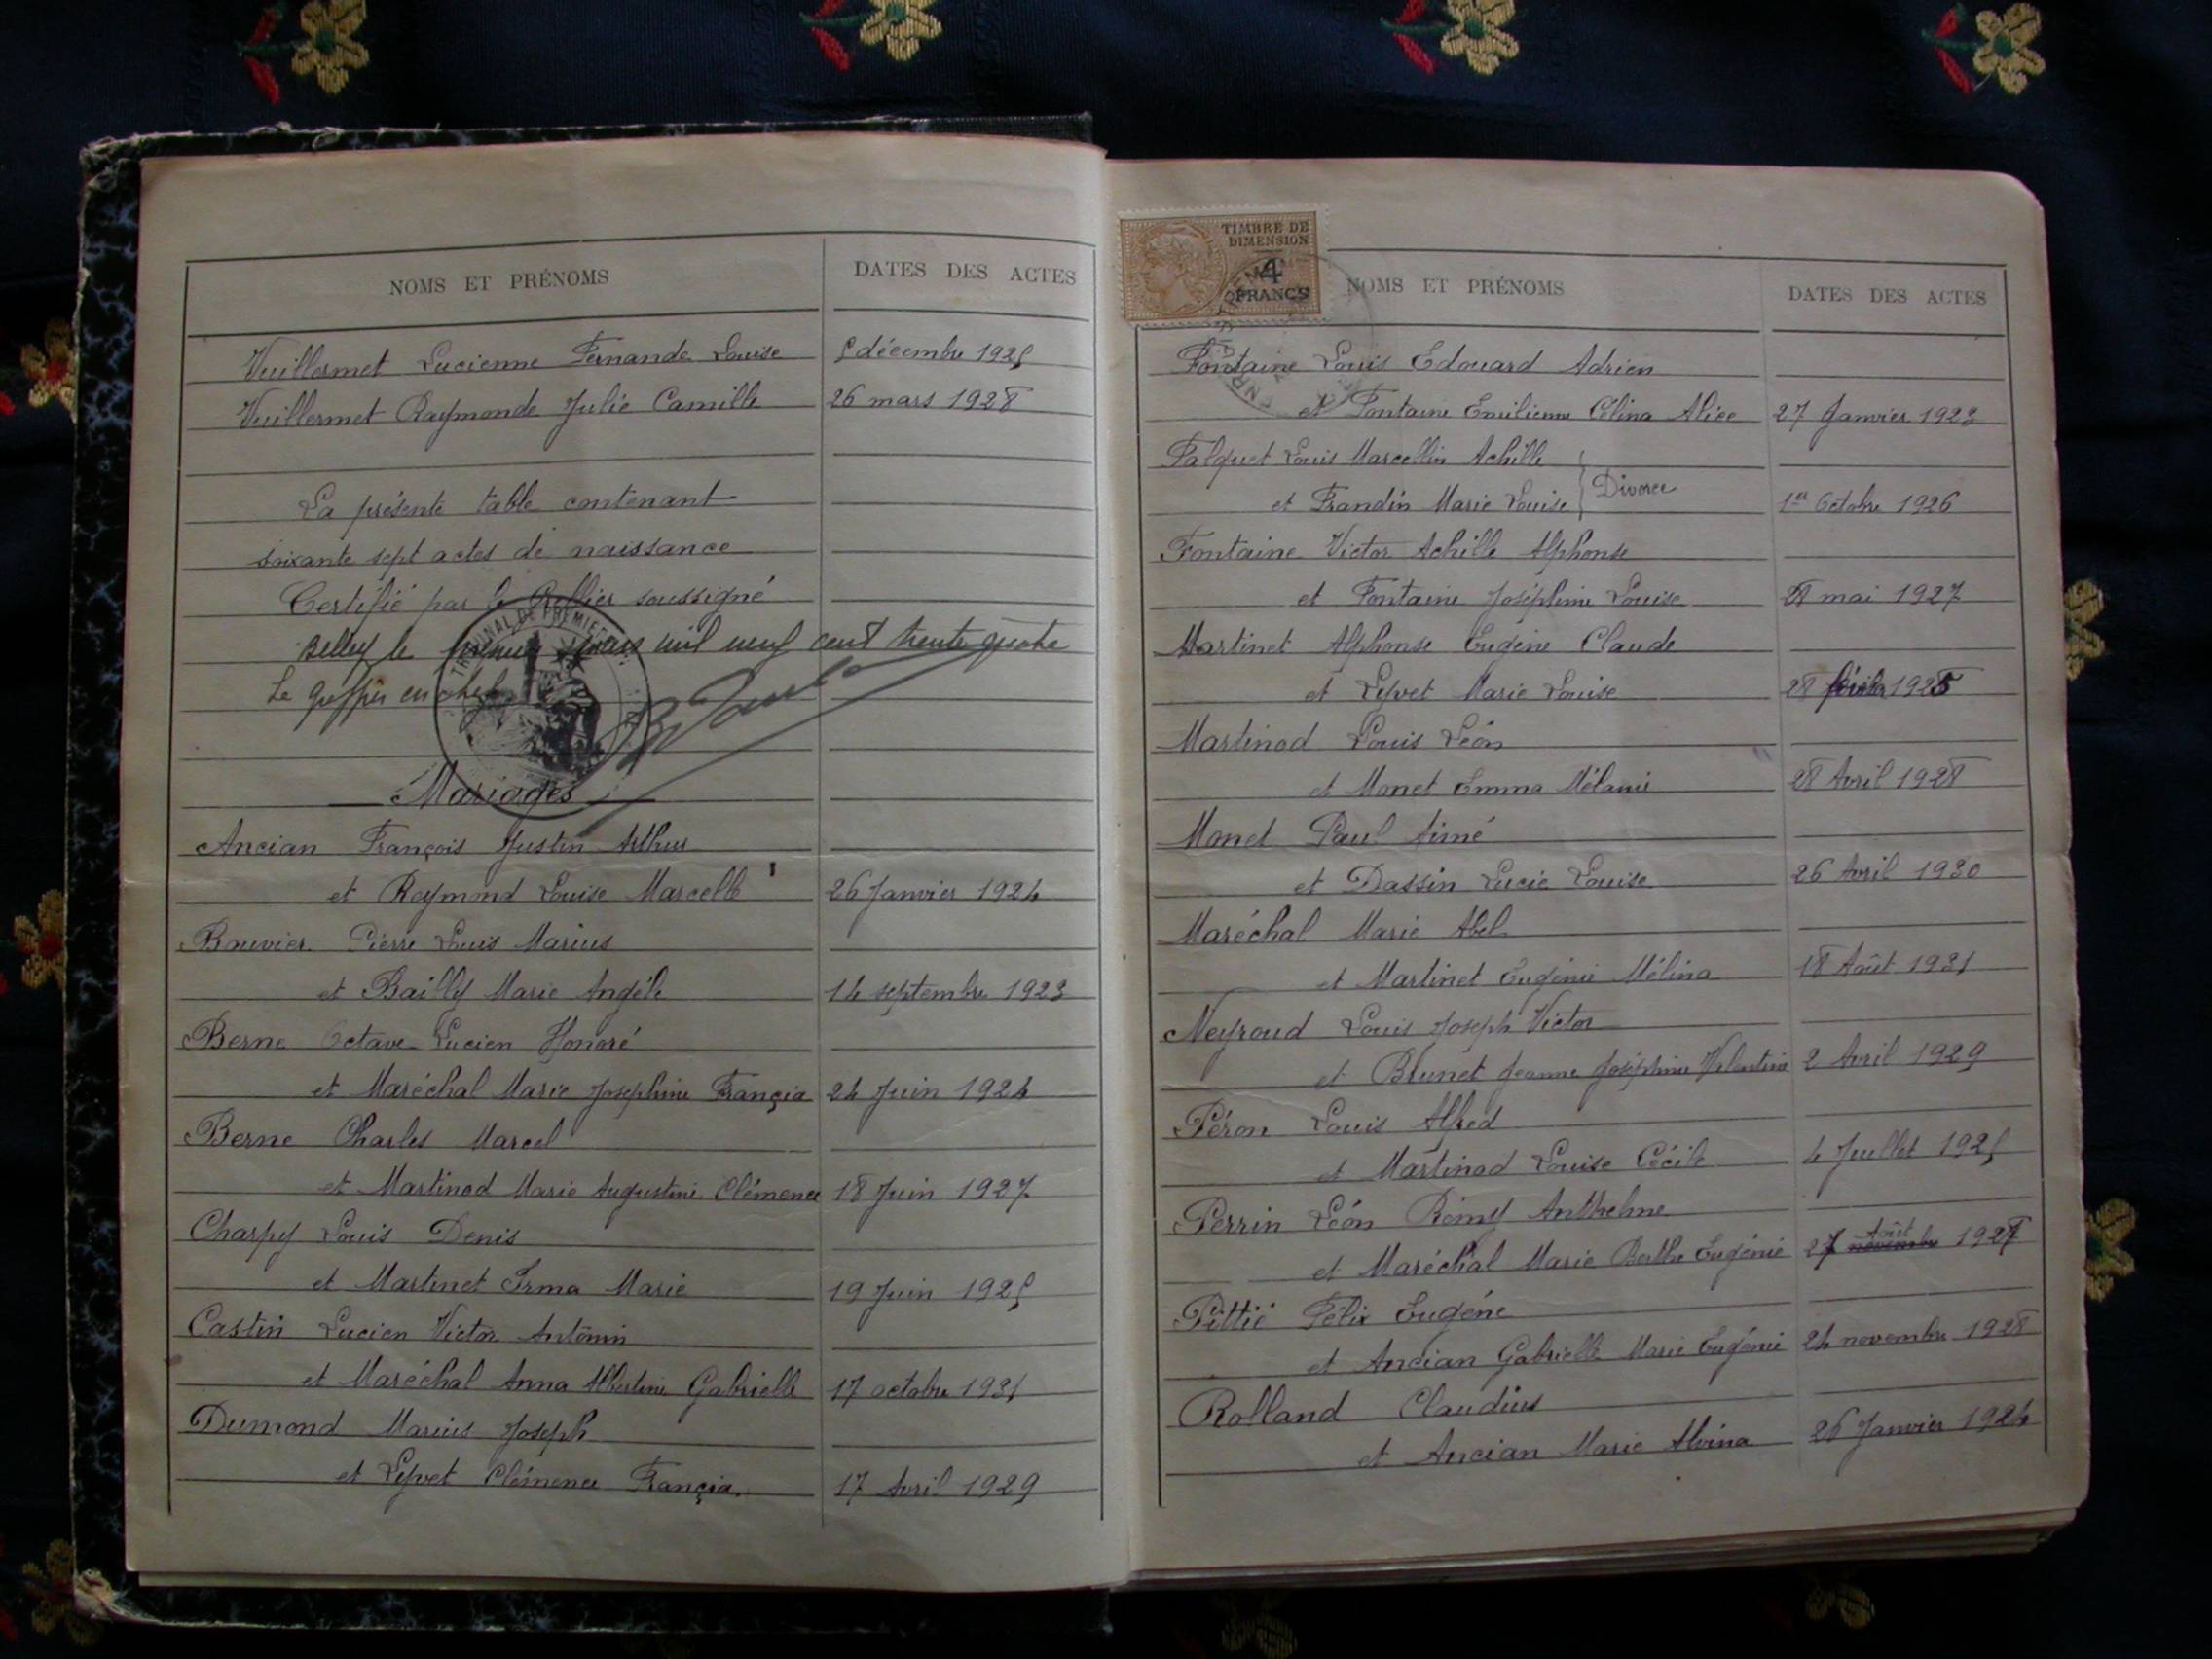 NOMS ET PRÉNOMS
DATES DES ACTES
Vuillermet Lucienne Fernande Louise 5 décembre 1925
Vuillermet Raymonde Julie Camille 26 mars 1928
La présente table contenant
soixante sept actes de naissance
Certifié par le Greffier soussigné
Belley le mars mil neuf cent trente quatre
Le greffier en chef
TRIBUNAL DE PREMIERE
Mariages
Ancian François Justin Arthur
et Raymond Louise Marcelle 26 Janvier 1924
Bouvier Pierre Louis Marius
et Bailly Marie Angèle 14 septembre 1923
Berne Octave Lucien Honoré
et Maréchal Marie Josephine Françia 24 Juin 1924
Berne Charles Marcel
et Martinod Marie Augustine Clémence 18 Juin 1927
Charpy Louis Denis
et Martinet Irma Marie 19 Juin 1925
Castin Lucien Victor Antonin
et Maréchal Anna Albertine Gabrielle 17 octobre 1931
Dumond Marius Joseph
et Lyvet Clémence Françia 17 Avril 1929
TIMBRE DE
DIMENSION
4
FRANCS
NOMS ET PRÉNOMS
DATES DES ACTES
Fontaine Louis Edouard Adrien
et Fontaine Emilienne Célina Alice 27 Janvier 1923
Falquet Louis Marcellin Achille
Divorce
et Frandin Marie Louise 1er Octobre 1926
Fontaine Victor Achille Alphonse
et Fontaine Joséphine Louise 28 mai 1927
Martinet Alphonse Eugène Claude
et Lyvet Marie Louise 28 février 1925
Martinod Louis Léon
et Monet Emma Mélanie 28 Avril 1928
Monet Paul Aimé
et Dassin Lucie Louise 26 Avril 1930
Maréchal Marie Abel
et Martinet Eugénie Mélina 18 Août 1931
Neyroud Louis Joseph Victor
et Brunet Jeanne Joséphine Valentine 2 Avril 1929
Péron Louis Alfred
et Martinod Louise Cécile 4 Juillet 1925
Perrin Léon Rémy Anthelme
Août
et Maréchal Marie Berthe Eugénie 27 novembre 1927
Pittié Félix Eugène
et Ancian Gabrielle Marie Eugénie 24 novembre 1928
Rolland Claudius
et Ancian Marie Alvina 26 Janvier 1924